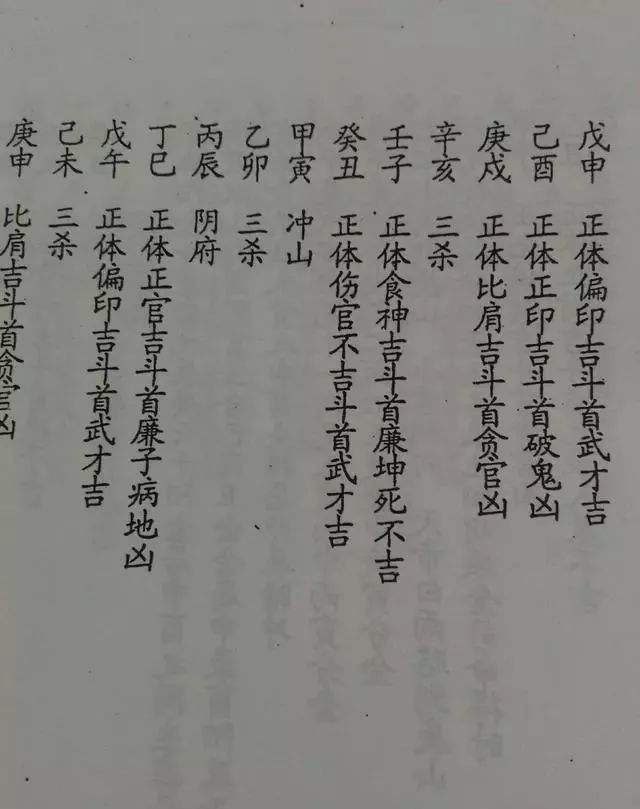 戊申 正体偏印吉斗首武才吉
己酉 正体正印吉斗首破鬼凶
庚戍 正体比肩吉斗首贪官凶
辛亥 三杀
壬子 正体食神吉斗首廉坤死不吉
癸丑 正体伤官不吉斗首武才吉
甲寅 冲山
乙卯 三杀
丙辰 阴府
丁巳 正体正官吉斗首廉子病地凶
戊午 正体偏印吉斗首武才吉
己未 三杀
庚申 比肩吉斗首贪官凶